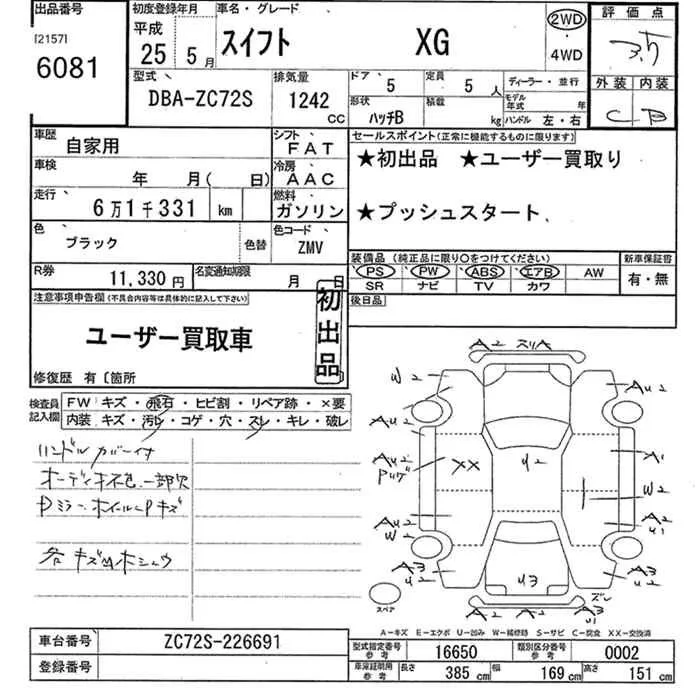 出品番号 初度登録年月 車名・グレード 評価点
[2157] 平成
6081 25年 5月 スイフト XG 2WD ・ 4WD
外装 内装
C B
型式 排気量 ドア 定員 ディーラー・並行
DBA-ZC72S 1242cc 5 5人 モデル年式 年
形状 積載
ハッチB kg ハンドル 左・右
車歴 自家用 シフト FAT
車検 年 月( 日) 冷房 AAC
走行 6万1千331 km 燃料 ガソリン
色 ブラック 色替 色コード ZMV
R券 11,330円 名変通知期限 月 日
セールスポイント(正常に機能するものに限ります)
★初出品 ★ユーザー買取り
★プッシュスタート、
装備品(純正品に限り○をつけてください) 新車保証書
PS PW ABS エアB AW 有・無
SR ナビ TV カワ
後日品
注意事項申告欄(不具合内容等は具体的に記入して下さい)
ユーザー買取車
初出品
修復歴 有〔箇所
検査員記入欄 FW キズ・飛石・ヒビ割・リペア跡・×要
内装 キズ・汚レ・コゲ・穴・スレ・キレ・破レ
ハンドルカバー付
一部欠
Pミラー ホイールP キズ
各キズ凹ホシュウ
A2 スリA
W2 Au2
Au2
Au2 A1
XX U2
W2
Au2 A2
W2 U1
A3 A3
U2 U2
U3 ズレ
A2 A2 A3
U1
スペア
A－キズ E－エクボ U－凹み W－補修跡 S－サビ C－腐食 XX－交換済
車台番号 ZC72S-226691
登録番号
型式指定番号 参考 16650 類別区分番号 参考 0002
車庫証明用 参考 長さ 385cm 幅 169cm 高さ 151cm